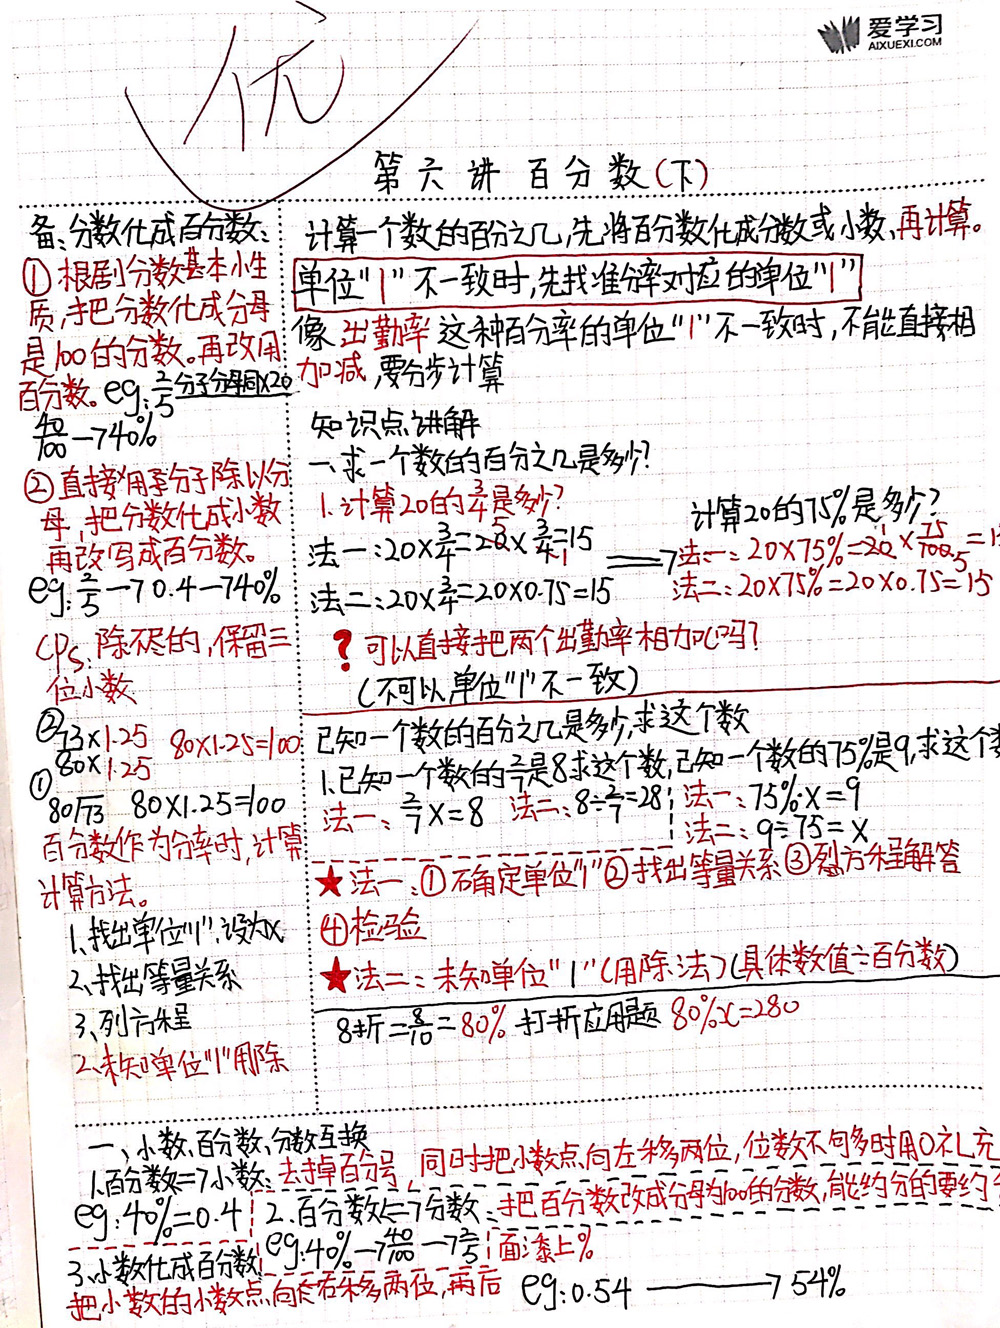 优
爱学习
AIXUEXI.COM
第六讲 百分数(下)
备:分数化成百分数:
①根剧分数基本小生
质,才把分数化成分母
是100的分数。再改用
百分数。eg:2/5 分子分母同×20
40/100→40%
②直接用分子除以分
母,把分数化成小数
再改写成百分数。
eg:2/5→0.4→40%
Ps:除不尽的,保留三
位小数
②73×1.25 80×1.25=100
80×1.25
①
80/73 80×1.25=100
百分数作为分率时,计算
计算方法。
1、找出单位"1",设为x
2、找出等量关系
3、列方程
2、未知单位"1"用除
计算一个数的百分之几,先将百分数化成分数或小数,再计算。
单位"1"不一致时,先找准分率对应的单位"1"
像出勤率这种百分率的单位"1"不一致时,不能直接相
加减,要分步计算
知识点讲解
一、求一个数的百分之几是多少?
1.计算20的3/4是多少?
法一:20×3/4=20×3/4=15
5
1
法二:20×3/4=20×0.75=15
计算20的75%是多少?
法一:20×75%=20×75/100=1
1
5
法二:20×75%=20×0.75=15
?可以直接把两个出勤率相加吗?
(不可以,单位"1"不一致)
已知一个数的百分之几是多少,求这个数
1.已知一个数的2/7是8求这个数,已知一个数的75%是9,求这个数
法一:2/7x=8 法二:8÷2/7=28
法一:75%·x=9
法二:9÷75=x
★法一:①确定单位"1"②找出等量关系③列方程解答
④检验
★法二:未知单位"1"(用除法)(具体数值÷百分数)
8折=8/10=80% 打折应用题 80%x=280
一、小数、百分数、分数互换
1.百分数→小数:去掉百分号,同时把小数点向左移两位,位数不够时用0补充
eg:40%=0.4
2.百分数→分数:把百分数改成分母为100的分数,能约分的要约分
eg:40%→40/100→2/5
3.小数化成百分数
把小数的小数点向右移两位,再后
面添上%
eg:0.54→54%